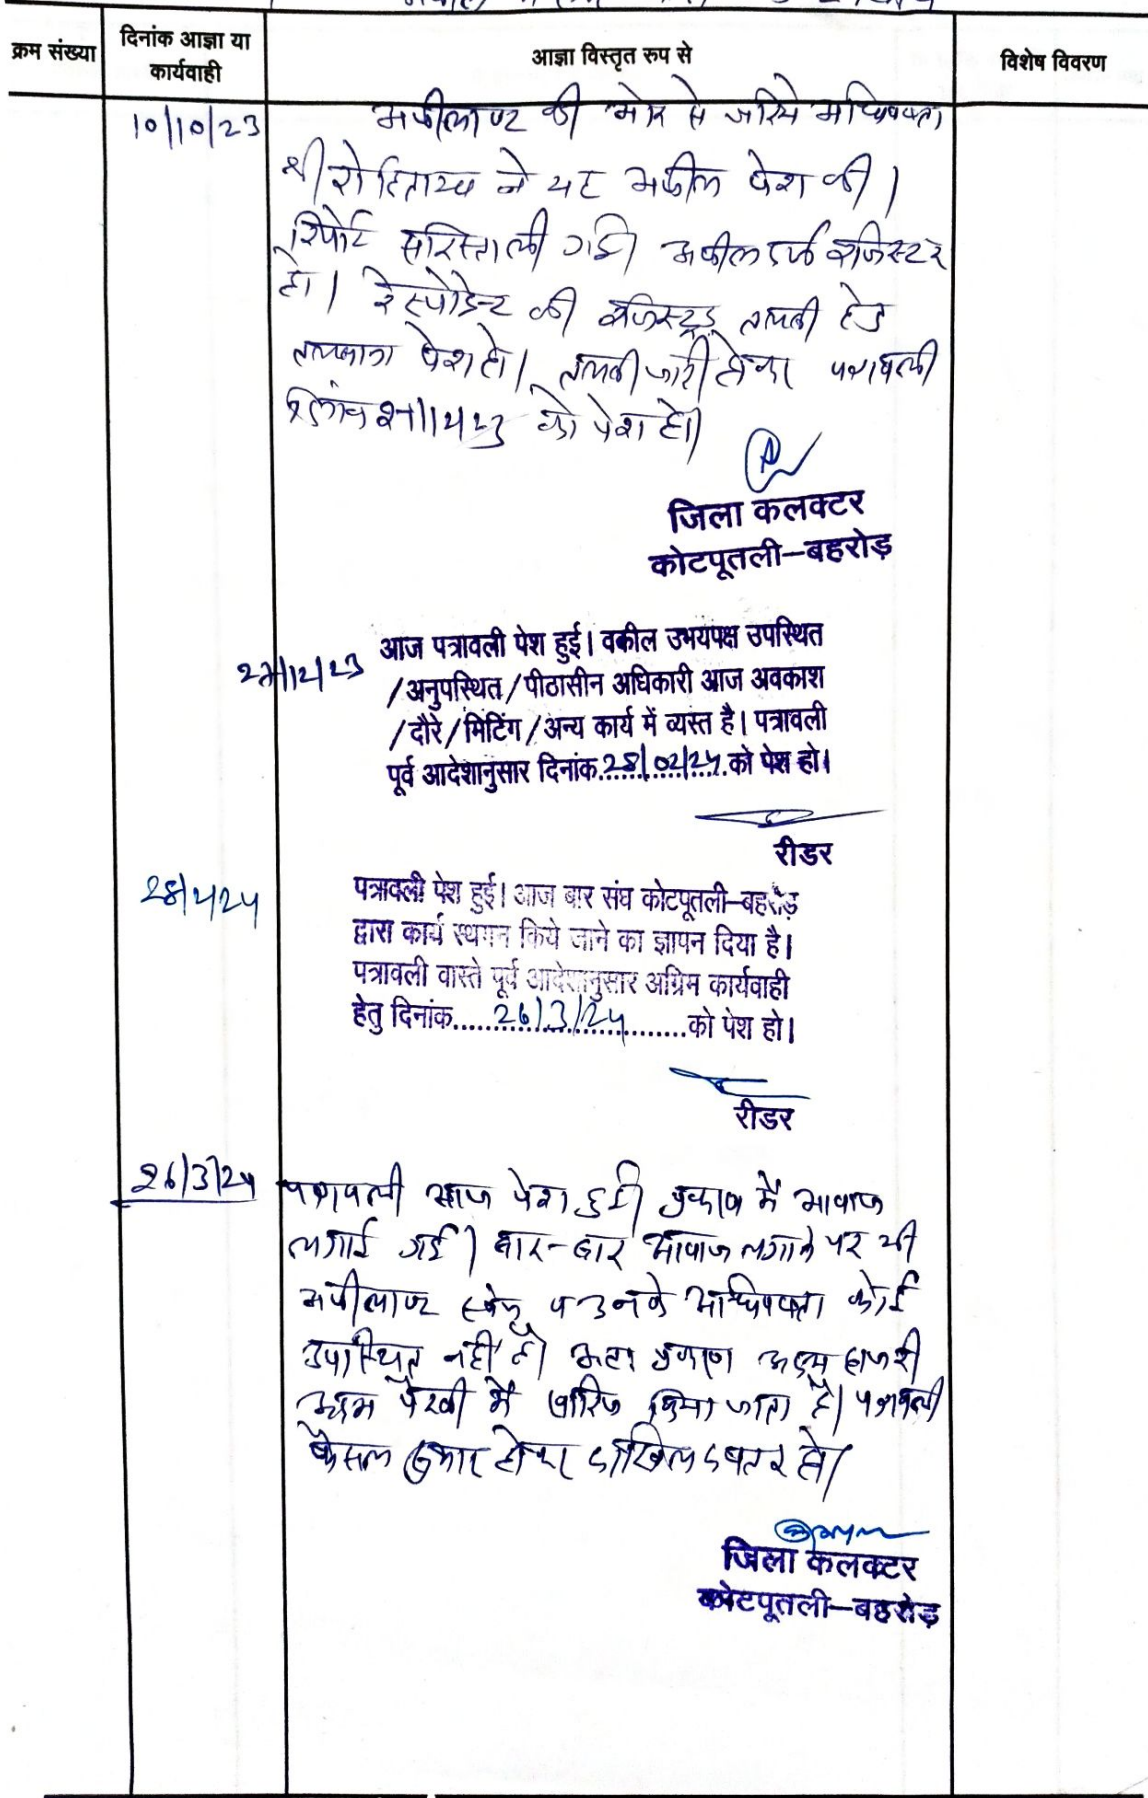 क्रम संख्या
दिनांक आज्ञा या
कार्यवाही
आज्ञा विस्तृत रूप से
विशेष विवरण
10/10/23
अपीलाण्ट की ओर से जरिये अधिवक्ता
श्री रोहिताश्व ने यह अपील पेश की।
रिपोर्ट सरिस्ता ली गई। अपील दर्ज रजिस्टर
हो। रेस्पोडेन्ट की रजिस्टर्ड तलबी हेतु
तलबाना पेश हो। तलबी जारी होकर पत्रावली
दिनांक 27/12/23 को पेश हो।
जिला कलक्टर
कोटपूतली–बहरोड़
27/12/23
आज पत्रावली पेश हुई। वकील उभयपक्ष उपस्थित
/अनुपस्थित/पीठासीन अधिकारी आज अवकाश
/दौरे/मिटिंग/अन्य कार्य में व्यस्त है। पत्रावली
पूर्व आदेशानुसार दिनांक 28/02/24 को पेश हो।
रीडर
28/2/24
पत्रावली पेश हुई। आज बार संघ कोटपूतली–बहरोड़
द्वारा कार्य स्थगन किये जाने का ज्ञापन दिया है।
पत्रावली वास्ते पूर्व आदेशानुसार अग्रिम कार्यवाही
हेतु दिनांक.....26/3/24.....को पेश हो।
रीडर
26/3/24
पत्रावली आज पेश हुई। प्रकरण में आवाज
लगाई गई। बार-बार आवाज लगाने पर भी
अपीलाण्ट स्वयं व उनके अधिवक्ता कोई
उपस्थित नहीं है। अतः प्रकरण अदम हाजरी
अदम पैरवी में खारिज किया जाता है। पत्रावली
फैसल शुमार होकर दाखिल दफ्तर हो।
जिला कलक्टर
कोटपूतली–बहरोड़